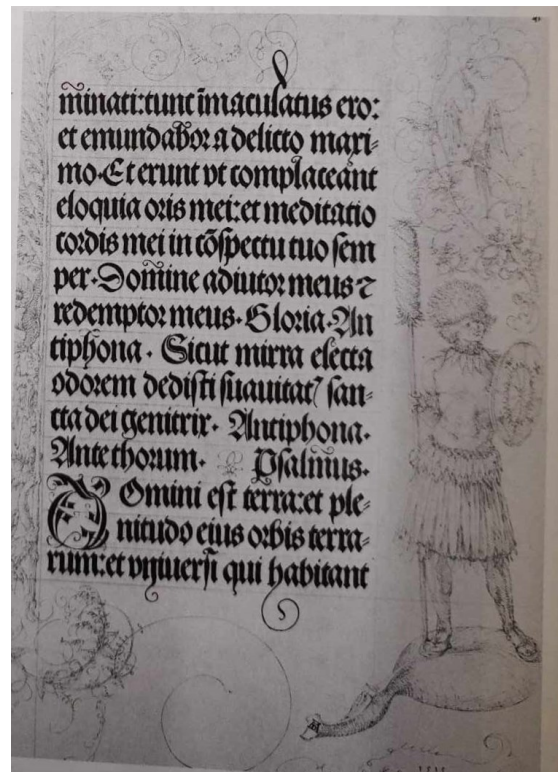 m̄inati:tunc īmaculatus ero:
et emundabor a delicto maxi-
mo. Et erunt vt complaceant
eloquia oris mei: et meditatio
cordis mei in cōspectu tuo sem
per. Domine adiutor meus ⁊
redemptor meus. Gloria. An
tiphona. Sicut mirra electa
odorem dedisti suauitat᷒ san-
cta dei genitrix. Antiphona.
Ante thorum. Psalmus.
Domini est terra: et ple-
nitudo eius orbis terra-
rum: et vniuersi qui habitant